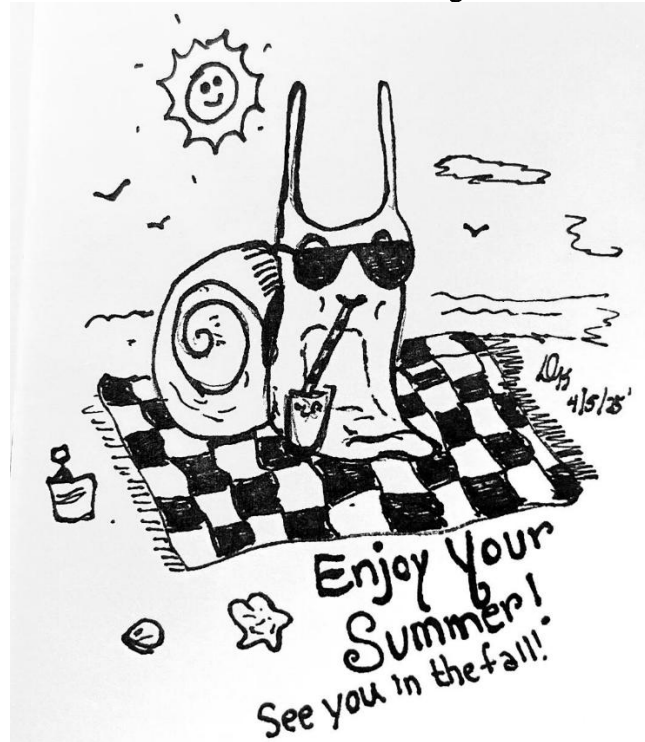 4/5/25'
Enjoy Your
Summer!
See you in the fall!